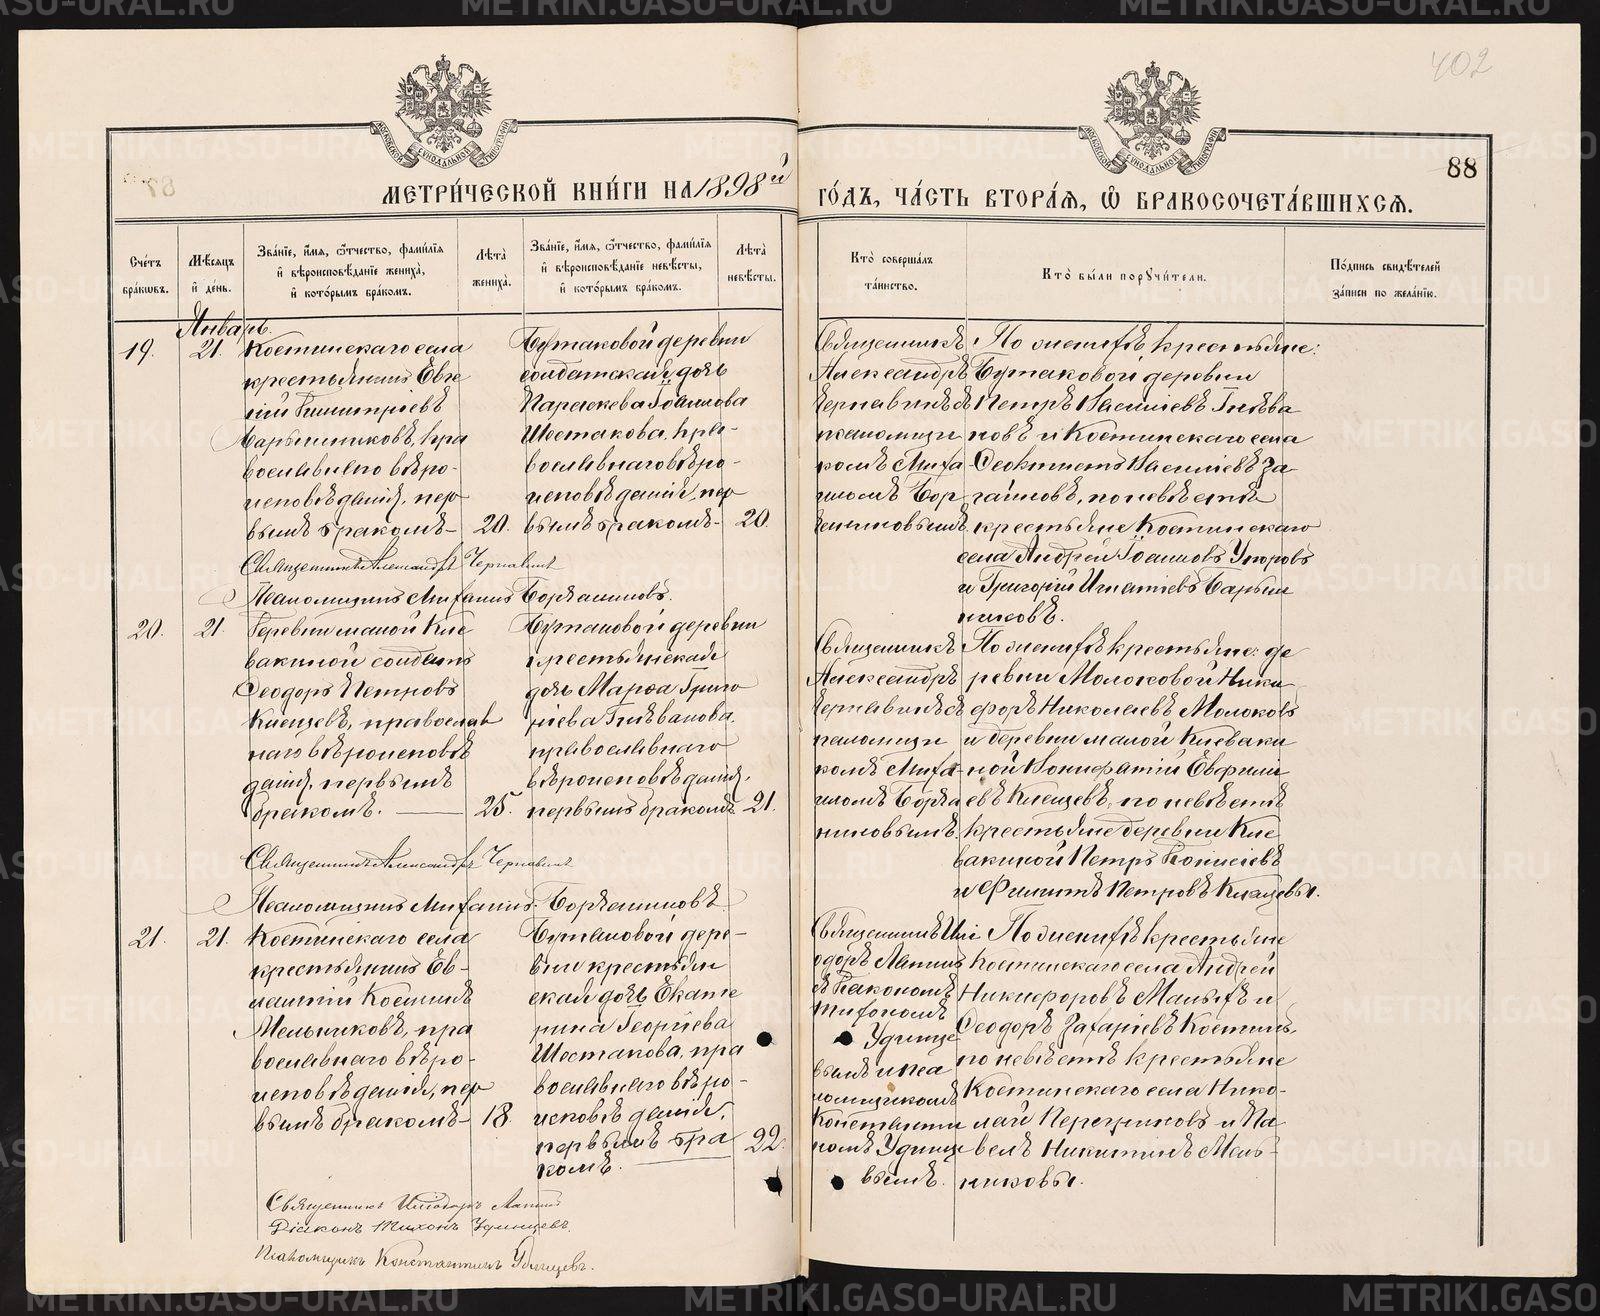 METRIKI.GASO-URAL.RU
402
88
МЕТРИ́ЧЕСКОЙ КНИ́ГИ НА 1898й ГО́ДЪ, ЧА́СТЬ ВТОРА́Я, Ѽ БРАКОСОЧЕТА́ВШИХСЯ.
МОСКОВСКОЙ СѴНОДАЛЬНОЙ ТИПОГРАФІИ
МОСКОВСКОЙ СѴНОДАЛЬНОЙ ТИПОГРАФІИ
Сче́тъ бра́кѡвъ.
Мѣ́сяцъ и҆ де́нь.
Зва́нїе, и҆́мя, ѻ҆́тчество, фами́лїя и҆ вѣроисповѣ́данїе жениха̀, и҆ кото́рымъ бра́комъ.
Лѣта̀ жениха̀.
Зва́нїе, и҆́мя, ѻ҆́тчество, фами́лїя и҆ вѣроисповѣ́данїе невѣ́сты, и҆ кото́рымъ бра́комъ.
Лѣта̀ невѣ́сты.
Кто̀ соверша́лъ та́инство.
Кто̀ бы́ли порꙋчи́тели.
По́дпись свидѣ́телей за́писи по жела́нїю.
Январь.
19.
21.
Костинскаго села
крестьянинъ Евге
ній Димитріевъ
Барышниковъ, пра
вославнаго вѣро-
исповѣданія, пер
вымъ бракомъ-
20.
Бутаковой деревни
солдатская дочь
Параскева Іоаннова
Шестакова, пра-
вославнаго вѣро-
исповѣданія, пер
вымъ бракомъ-
20.
Священникъ
Александръ
Чернавинъ съ
псаломщи
комъ Миха
иломъ Бор
чаниновымъ
По женихѣ крестьяне:
Бутаковой деревни
Петръ Василіевъ Гнѣва
новъ и Костинскаго села
Ѳеоктистъ Василіевъ За
гайновъ, по невѣстѣ
крестьяне Костинскаго
села Андрей Іоанновъ Упоровъ
и Григорій Игнатіевъ Барыш
никовъ.
Священникъ Александръ Чернавинъ
Псаломщикъ Михаилъ Борчаниновъ.
20.
21.
Деревни малой Кле
вакиной солдатъ
Ѳеодоръ Петровъ
Клещевъ, православ
наго вѣроисповѣ
данія, первымъ
бракомъ.
25.
Бутаковой деревни
крестьянская
дочь Марѳа Григо
ріева Гнѣванова,
православнаго
вѣроисповѣданія,
первымъ бракомъ
21.
Священникъ
Александръ
Чернавинъ съ
псаломщи
комъ Миха
иломъ Борча
ниновымъ.
По женихѣ крестьяне: де
ревни Молоковой Ники
форъ Николаевъ Молоковъ
и деревни малой Клеваки
ной Вонифатій Евфимі
евъ Клещевъ, по невѣстѣ
крестьяне деревни Кле
вакиной Петръ
и Филиппъ Петровъ Клещевы.
Священникъ Александръ Чернавинъ
Псаломщикъ Михаилъ Борчаниновъ.
21.
21.
Костинскаго села
крестьянинъ Ев-
Мельниковъ, пра
вославнаго вѣро-
исповѣданія, пер
вымъ бракомъ-
18.
Бутаковой дере-
вни крестьян
ская дочь Екате
рина Георгіева
Шестакова, пра
вославнаго вѣро-
исповѣданія,
первымъ бра
комъ.
22.
Священникъ Иси
доръ Лапинъ
съ Діакономъ
Тихономъ
Удинце
вымъ и пса
ломщикомъ
Константи
номъ Удинце
вымъ.
По женихѣ крестьяне
Костинскаго села Андрей
Никифоровъ Малыхъ и
Ѳеодоръ Захаріевъ Костинъ,
по невѣстѣ крестьяне
Костинскаго села Нико-
лай и Па
велъ Никитинъ Мель-
никовы.
Священникъ Исидоръ Лапинъ
Діаконъ Тихонъ Удинцевъ.
Псаломщикъ Константинъ Удинцевъ.